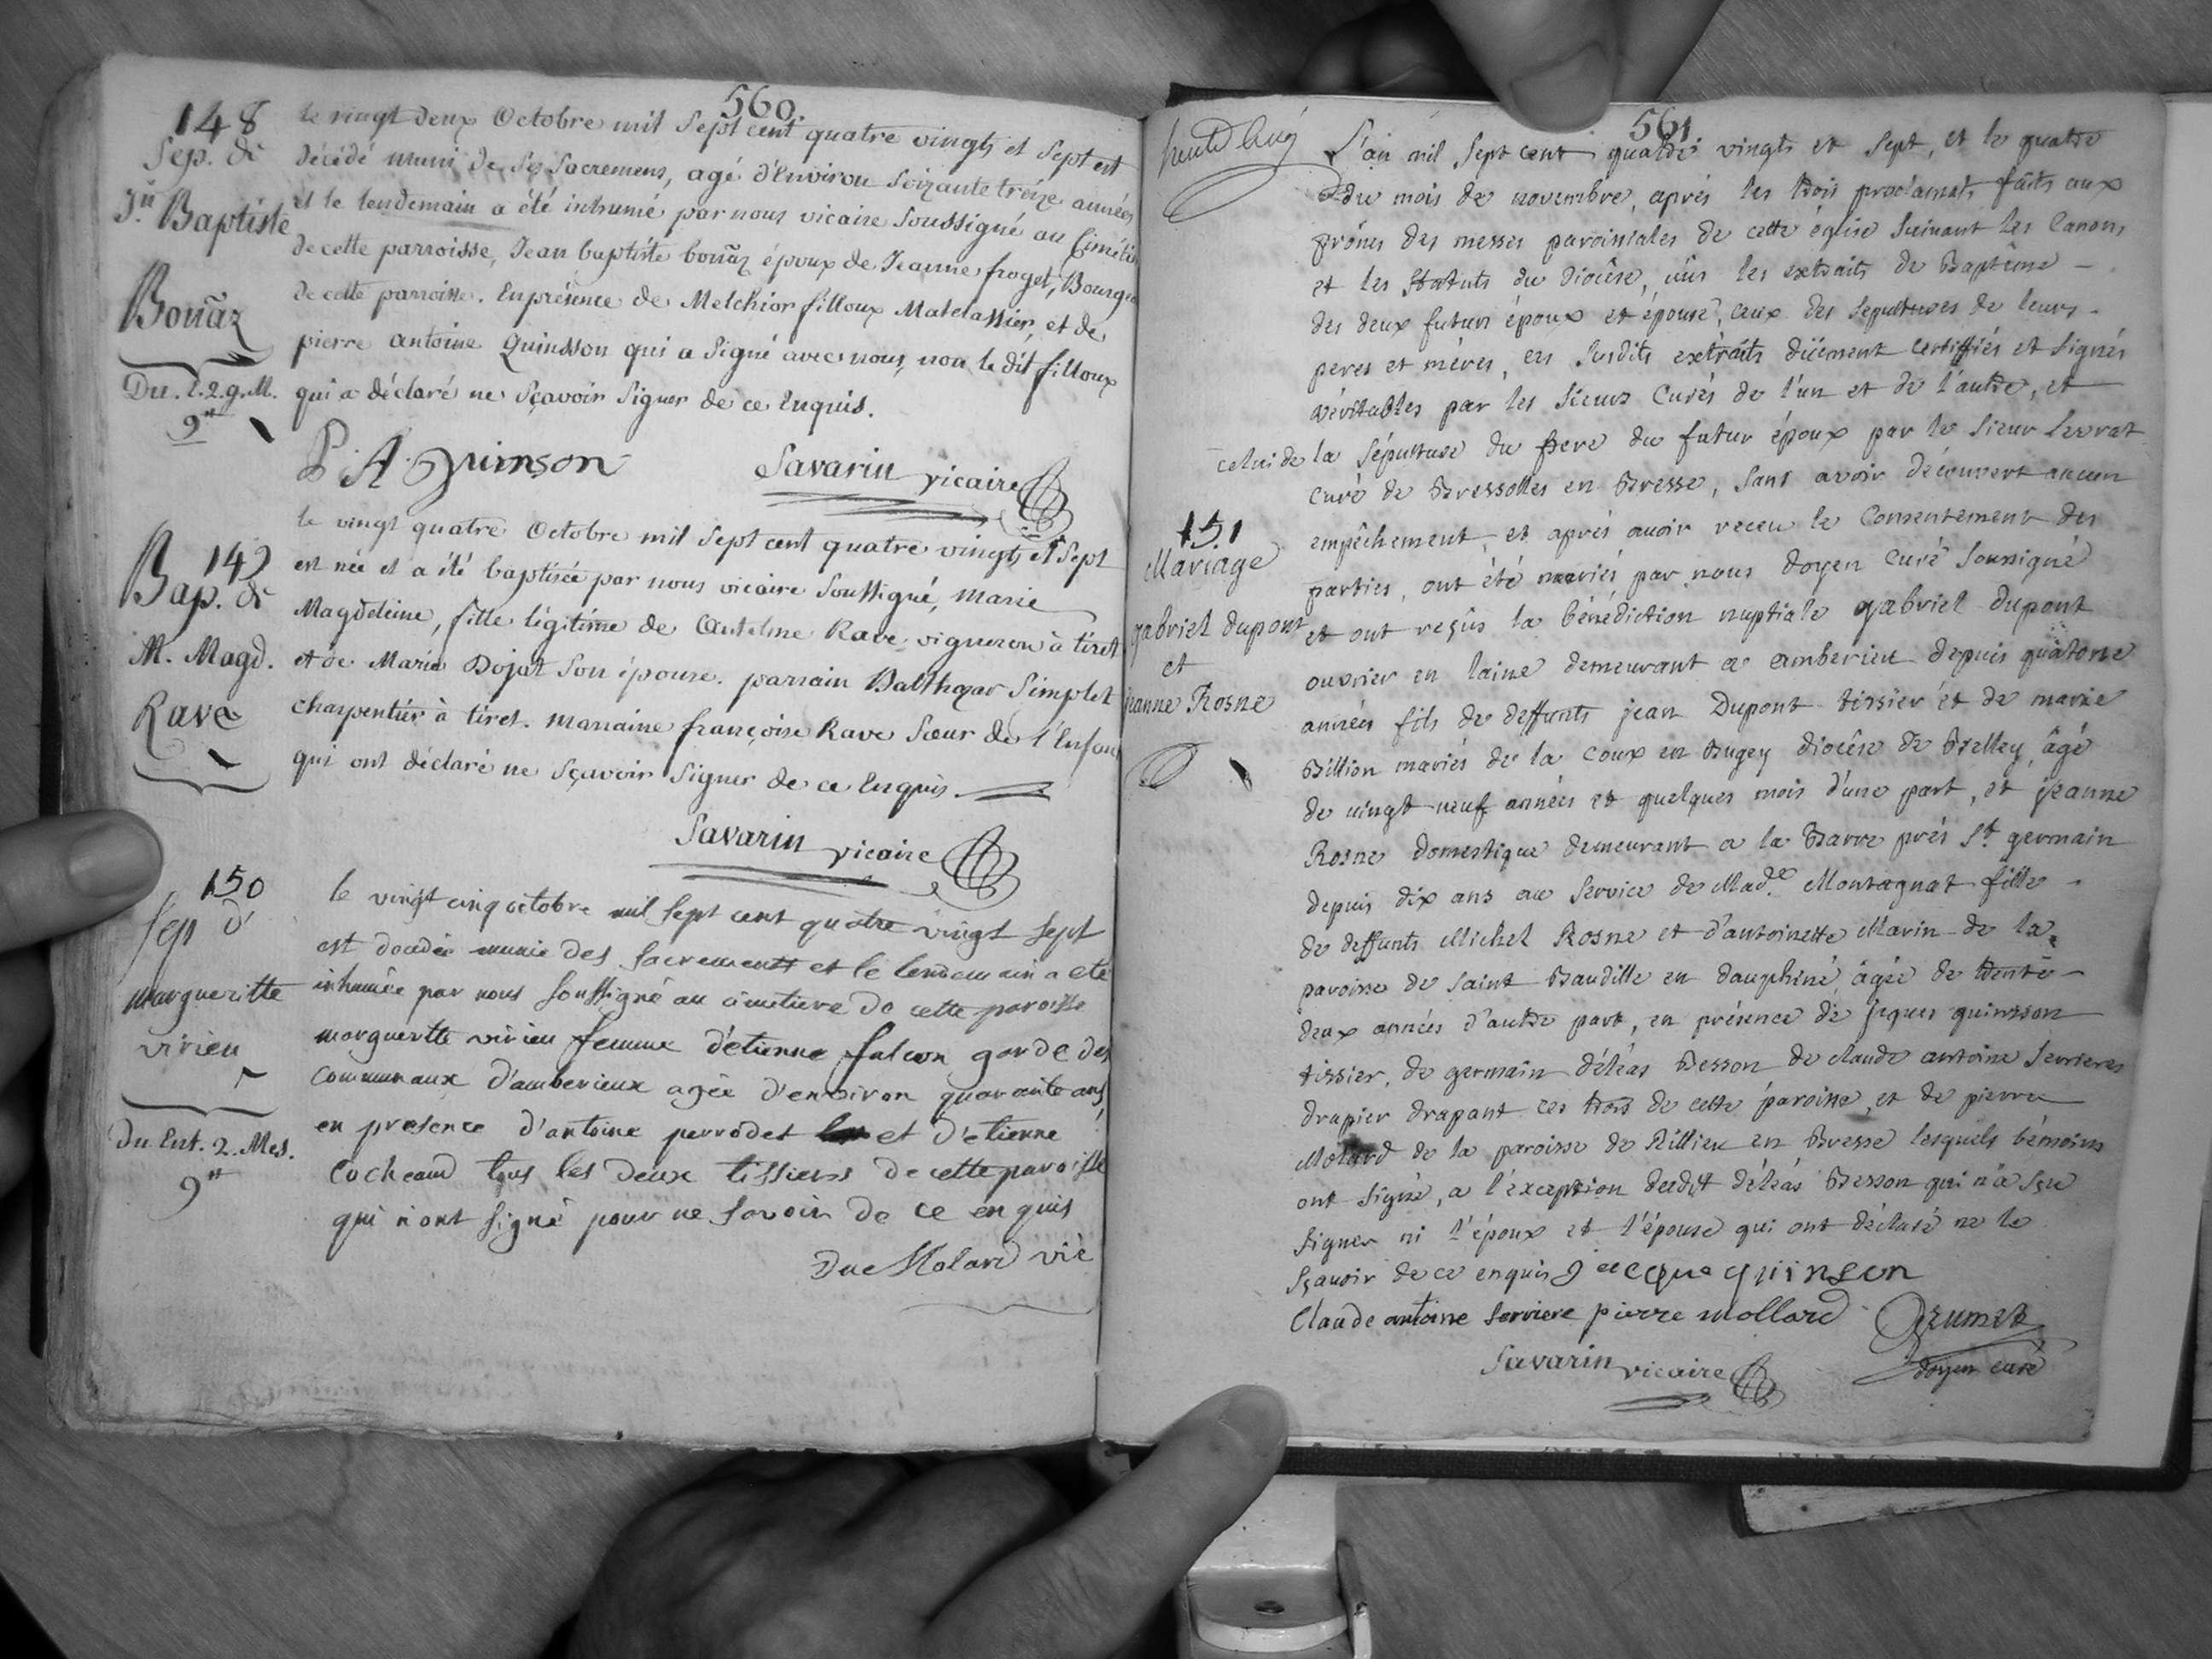 560.
148
Sep. de
Jn Baptiste
Bouâz
Du. E. 2. g. M.
9tt
le vingt deux Octobre mil Sept cent quatre vingts et Sept est
décédé muni de Ses Sacremens, agé d'Environ Soixante treize années
et le lendemain a été inhumé par nous vicaire Soussigné au Cimetie
de cette parroisse, Jean baptiste bouâz époux de Jeanne froget, Bourgeo
de cette parroisse. En présence de Melchior filloux Matelassier, et de
pierre antoine Quinsson qui a Signé avec nous, non le dit filloux
qui a déclaré ne Sçavoir Signer de ce Enquis.
P A Quinson
Savarin vicaire
149
Bap. de
M. Magd.
Rave
le vingt quatre Octobre mil Sept cent quatre vingts et Sept
est née et a été baptisée par nous vicaire Soussigné, Marie
Magdeleine, fille légitime de Antelme Rave vigneron à tiret
et de Marie Dojat Son épouse. parrain Balthazar Simplet
charpentier à tiret. marraine françoise Rave Sœur de l'Enfant
qui ont déclaré ne Sçavoir Signer de ce Enquis.
Savarin vicaire
150
Sep d
margueritte
virieu
Du Ent. 2. Mes.
9tt
le vingt cinq octobre mil sept cent quatre vingt sept
est decedée munie des sacrements et le lendemain a eté
inhumée par nous soussigné au cimetiere de cette paroisse
margueritte virieu femme d'étienne falcon garde des
communaux d'amberieux agée d'environ quarante ans
en presence d'antoine perrodet et d'etienne
Cocheaud tous les deux tissiers de cette paroisse
qui n'ont signé pour ne savoir de ce enquis
Duc Molard vic
561
151
Mariage
gabriel dupont
et
jeanne Rosne
L'an mil sept cent quatre vingts et sept, et le quatre
du mois de novembre, aprés les trois proclamats faits aux
prônes des messes paroissiales de cette église suivant les Canons
et les Statuts du diocèse, vûs les extraits de Baptême -
des deux futurs époux et épouse, ceux des sepultures de leurs -
peres et mères, ces susdits extraits düement certiffiés et signés
véritables par les sieurs Curés de l'un et de l'autre, et
celui de la sépulture du pere du futur époux par le sieur Levrat
curé de Bressolles en Bresse, sans avoir découvert aucun
empêchement, et aprés avoir receu le Consentement des
parties, ont été mariés par nous doyen Curé soussigné
et ont reçûs la bénédiction nuptiale gabriel dupont
ouvrier en laine demeurant a amberieu depuis quatorze
années fils de deffunts jean Dupont tissier et de marie
Billion mariés de la Coux en Bugey diocèse de Belley, âgé
de vingt neuf années et quelques mois d'une part, et jeanne
Rosne domestique demeurant a la Barre prés St germain
depuis dix ans au service de Made Montagnat fille -
de deffunts Michel Rosne et d'antoinette Marin de la
paroisse de saint Baudille en dauphiné, âgée de trente -
deux années d'autre part, en présence de jaques quinsson
tissier, de germain déléas Besson de claude antoine serrieres
drapier drapant ces trois de cette paroisse, et de pierre
Molard de la paroisse de Rillieu en Bresse lesquels témoins
ont signé, a l'éxception dudit déléas Besson qui n'a sçu
signer ni l'époux et l'épouse qui ont déclaré ne le
sçavoir de ce enquis Jacque quinson
Claude antoine serriere pierre mollard
Savarin vicaire doyen curé